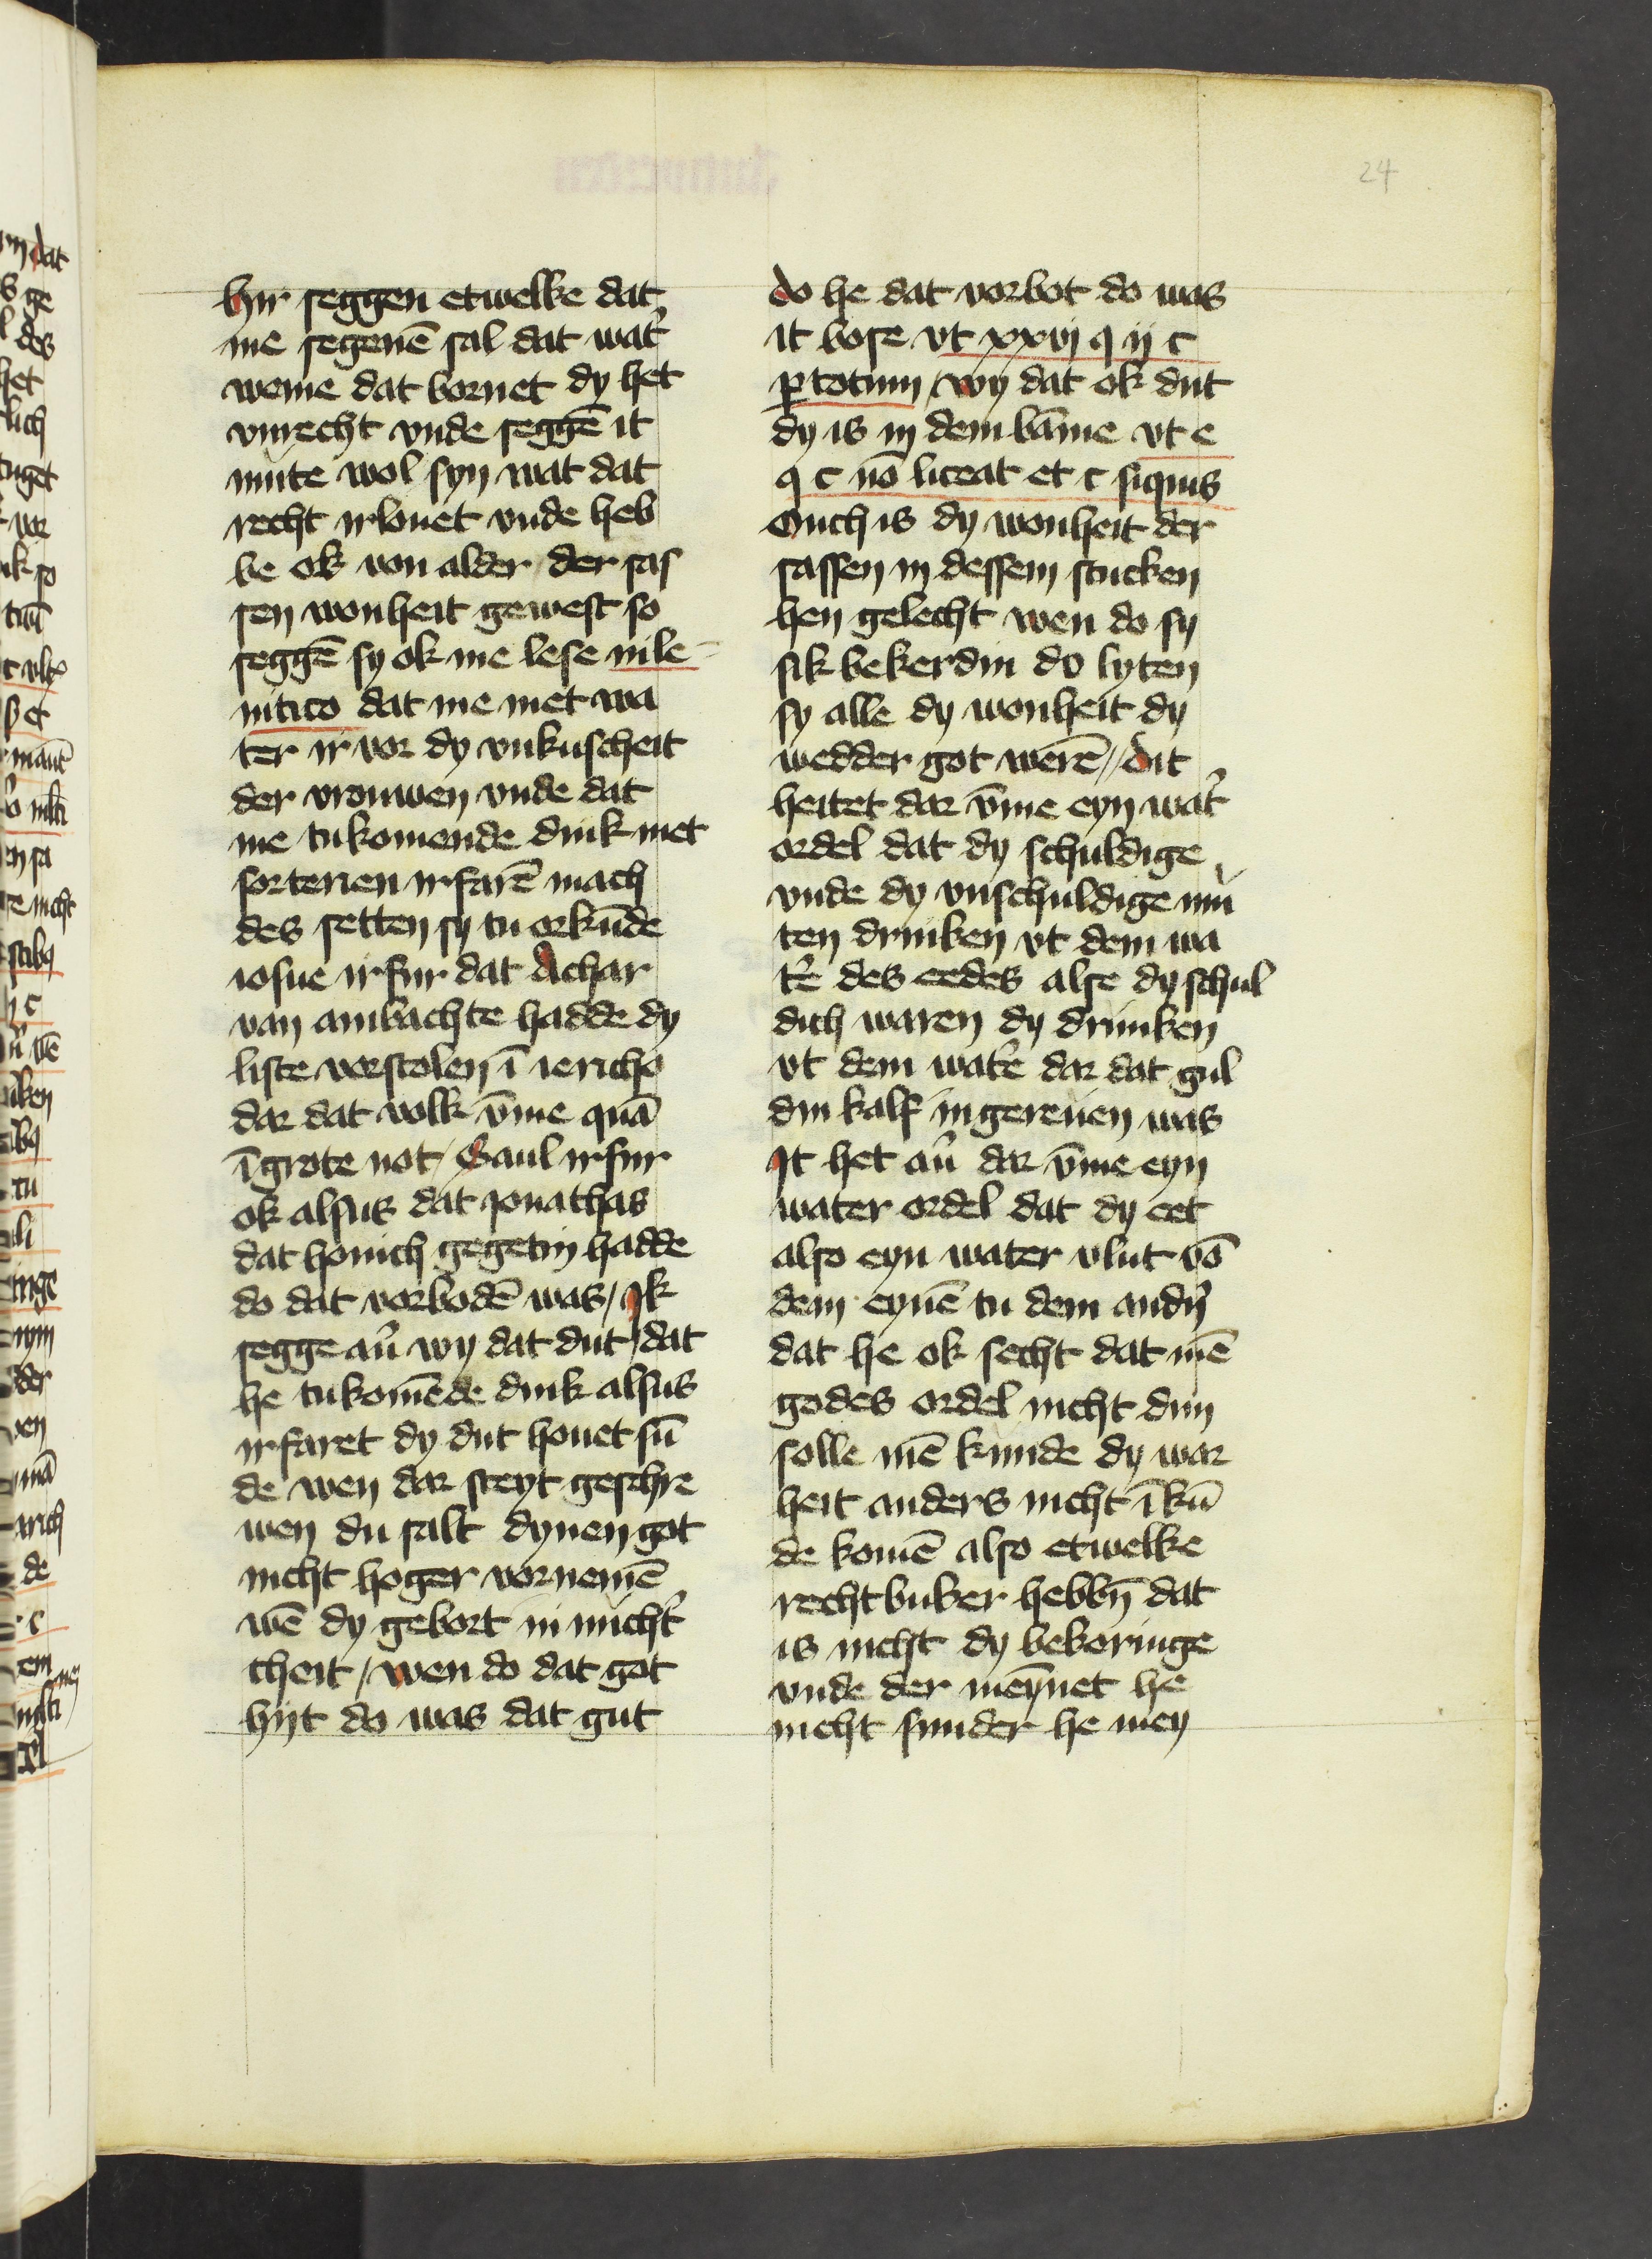 24
hyr seggen etwelke dat
me segenē sal dat wat̉
weme dat bornet dy het
vnrecht vnde seggē it
mute wol syn wat dat
recht irlouet vnde heb
be ok von alder der sas
sen wonheit gewest so
seggē sy ok me lese in le-
uitico dat me met wa
ter ir vor dy vnkuscheit
der vrouwen vnde dat
me tukomende dink met
sorterien irfarē mach
des setten sy tu orkūde
iosue irfur dat Achar
van ambachte hadde dy
liste vorstolen ī iericho
dar dat volk v̄me quā
ī grote not / Saul irfur
ok alsus dat jonathas
dat honich gegetin hadde
do dat vorbodē was / Ik
segge au̓ wy dat dut / dat
he tukomēde dink alsus
irfaret dy dut houet sū
de wen dar steyt geschre
wen du salt dynen got
nicht hoger vornemē
wē dy gebort in mich t̓
cheit / wen do dat got
hyt do was dat gut
do he dat vorbot do was
it bose vt xxvj q ij c
ꝑ totum / wy dat ok dut
dy is in dem bāme vt e
q c nō liceat et c siquis
Ouch is dy wonheit der
sassen in dessem stucken
hen gelecht wen do sy
sik bekerdin do lyten
sy alle dy wonheit dy
wedder got werē // dit
heitet dar v̄me eyn wat̉
ordel dat dy schuldige
vnde dy vnschuldige mu
ten drinken vt dem wa
t̓e des eedes alse dy schul
dich waren dy drunken
vt dem wat̓e dar dat gul
din kalf in gereuen was
It het au̓ dar v̄me eyn
water ordel dat dy eet
also eyn water vlut vō
dem eynē tu dem andy̓
dat he ok secht dat mē
godes ordel nicht dun
solle mē kunde dy war
heit anders nicht ī kū
de komē also etwelke
recht buker hebbn̄ dat
is nicht dy bekoringe
vnde der meyn̄et he
nicht sunder he mey